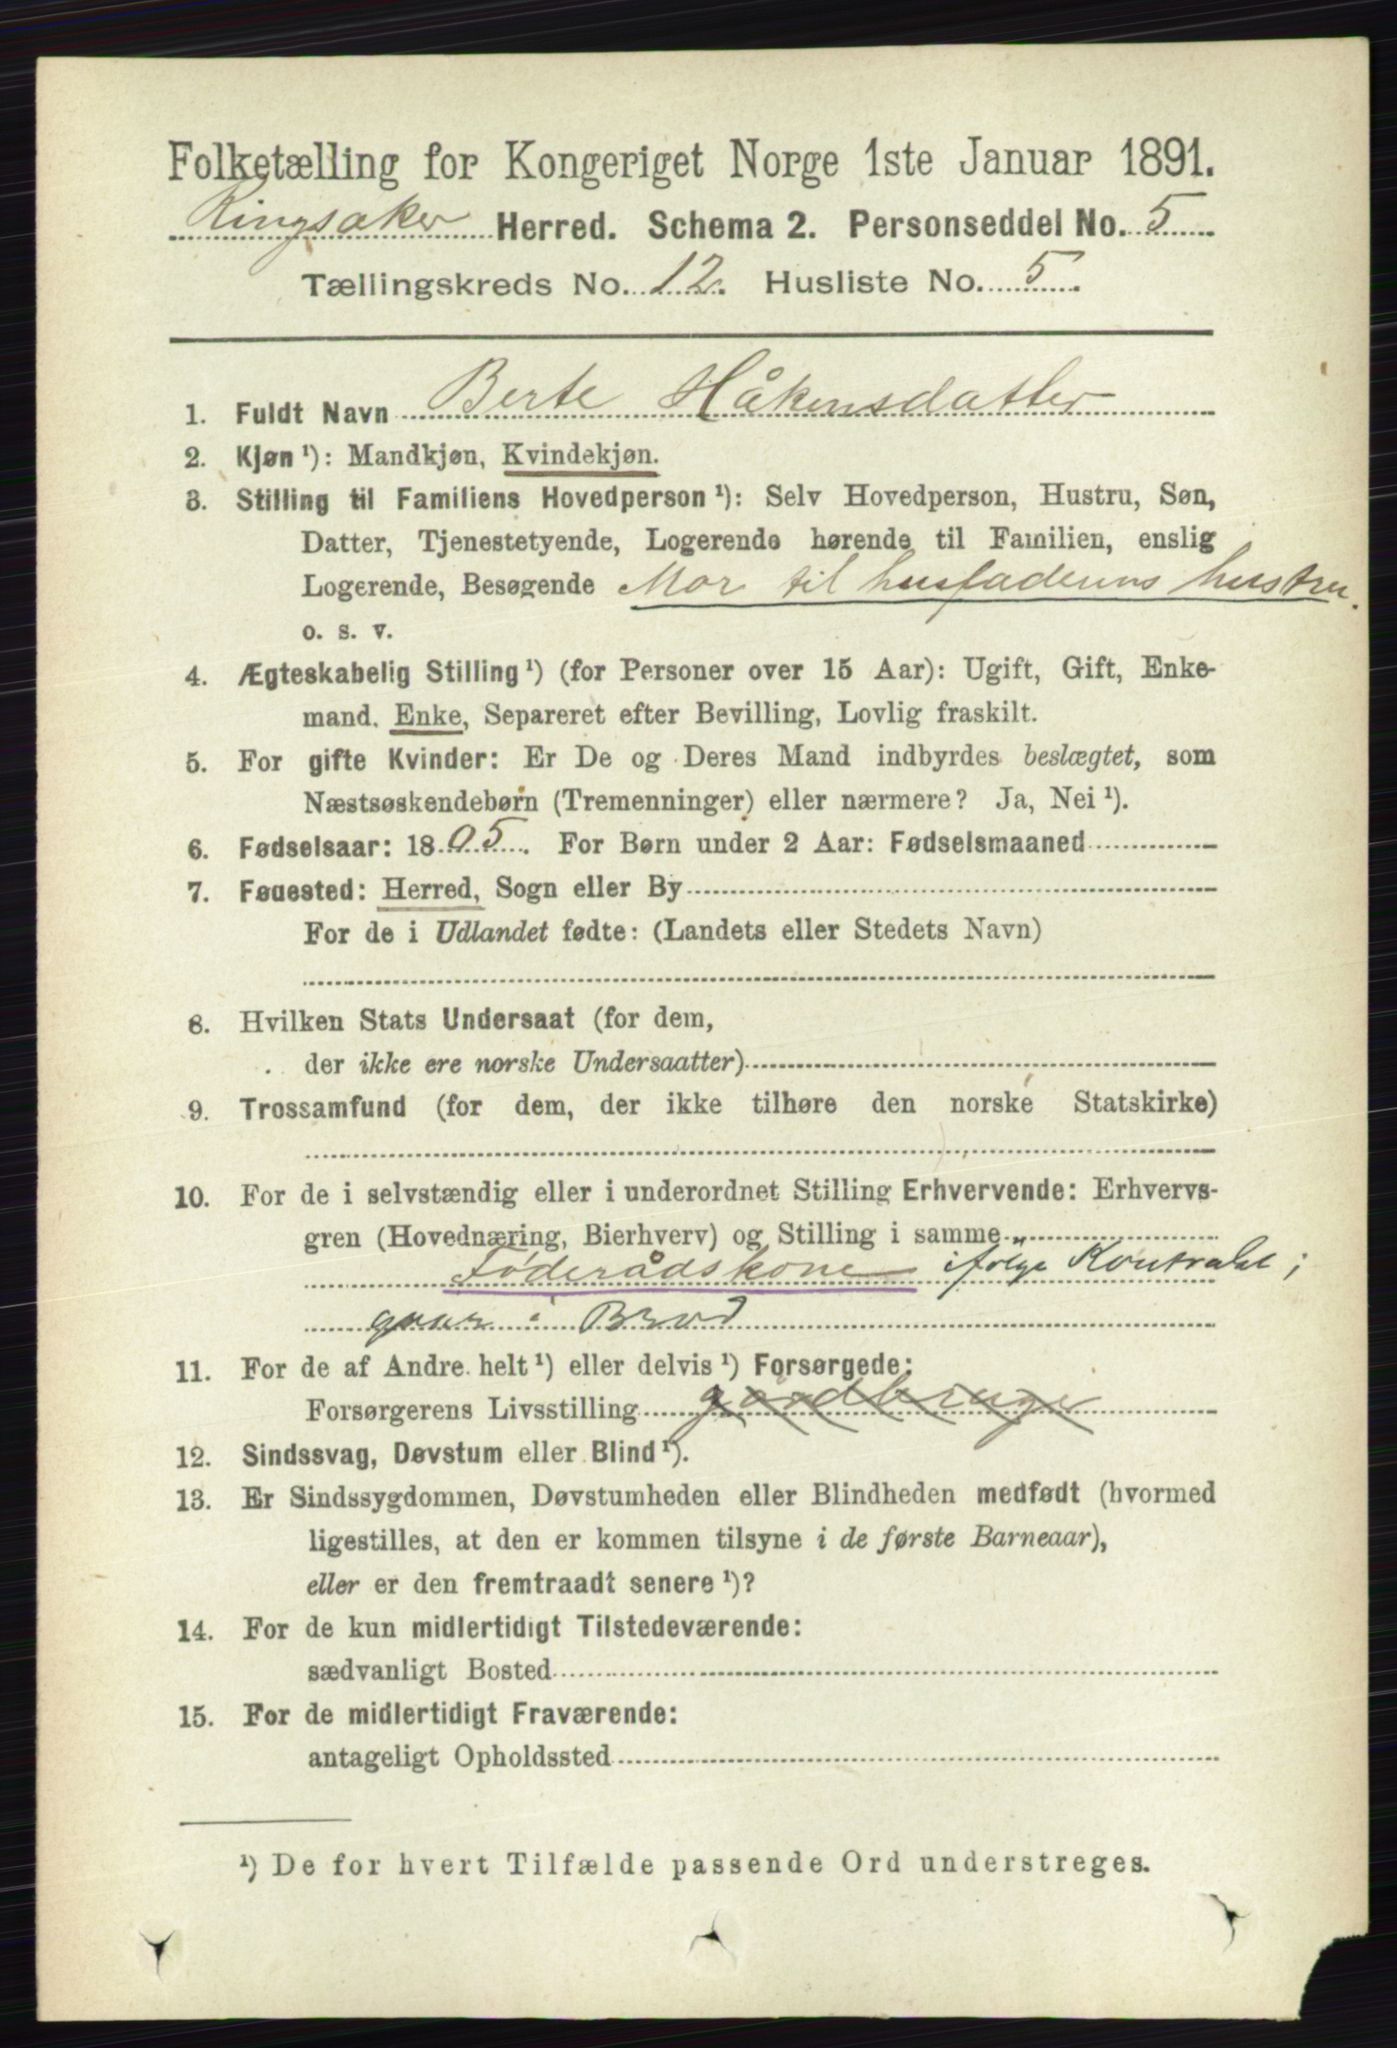 Folketælling for Kongeriget Norge 1ste Januar 1891.
Ringsaker Herred. Schema 2. Personseddel No. 5
Tællingskreds No. 12. Husliste No. 5.
1. Fuldt Navn Berte Håkensdatter
2. Kjøn ¹): Mandkjøn, Kvindekjøn.
3. Stilling til Familiens Hovedperson ¹): Selv Hovedperson, Hustru, Søn,
Datter, Tjenestetyende, Logerende hørende til Familien, enslig
Logerende, Besøgende Mor til husfaderens hustru.
o. s. v.
4. Ægteskabelig Stilling ¹) (for Personer over 15 Aar): Ugift, Gift, Enke-
mand, Enke, Separeret efter Bevilling, Lovlig fraskilt.
5. For gifte Kvinder: Er De og Deres Mand indbyrdes beslægtet, som
Næstsøskendebørn (Tremenninger) eller nærmere? Ja, Nei ¹).
6. Fødselsaar: 1805. For Børn under 2 Aar: Fødselsmaaned
7. Fødested: Herred, Sogn eller By
For de i Udlandet fødte: (Landets eller Stedets Navn)
8. Hvilken Stats Undersaat (for dem,
der ikke ere norske Undersaatter)
9. Trossamfund (for dem, der ikke tilhøre den norske Statskirke)
10. For de i selvstændig eller i underordnet Stilling Erhvervende: Erhvervs-
gren (Hovednæring, Bierhverv) og Stilling i samme
Føderådskone ifølge Kontrakt;
gaar i Brød
11. For de af Andre helt ¹) eller delvis ¹) Forsørgede:
Forsørgerens Livsstilling gårdbruger
12. Sindssvag, Døvstum eller Blind ¹).
13. Er Sindssygdommen, Døvstumheden eller Blindheden medfødt (hvormed
ligestilles, at den er kommen tilsyne i de første Barneaar),
eller er den fremtraadt senere ¹)?
14. For de kun midlertidigt Tilstedeværende:
sædvanligt Bosted
15. For de midlertidigt Fraværende:
antageligt Opholdssted
¹) De for hvert Tilfælde passende Ord understreges.